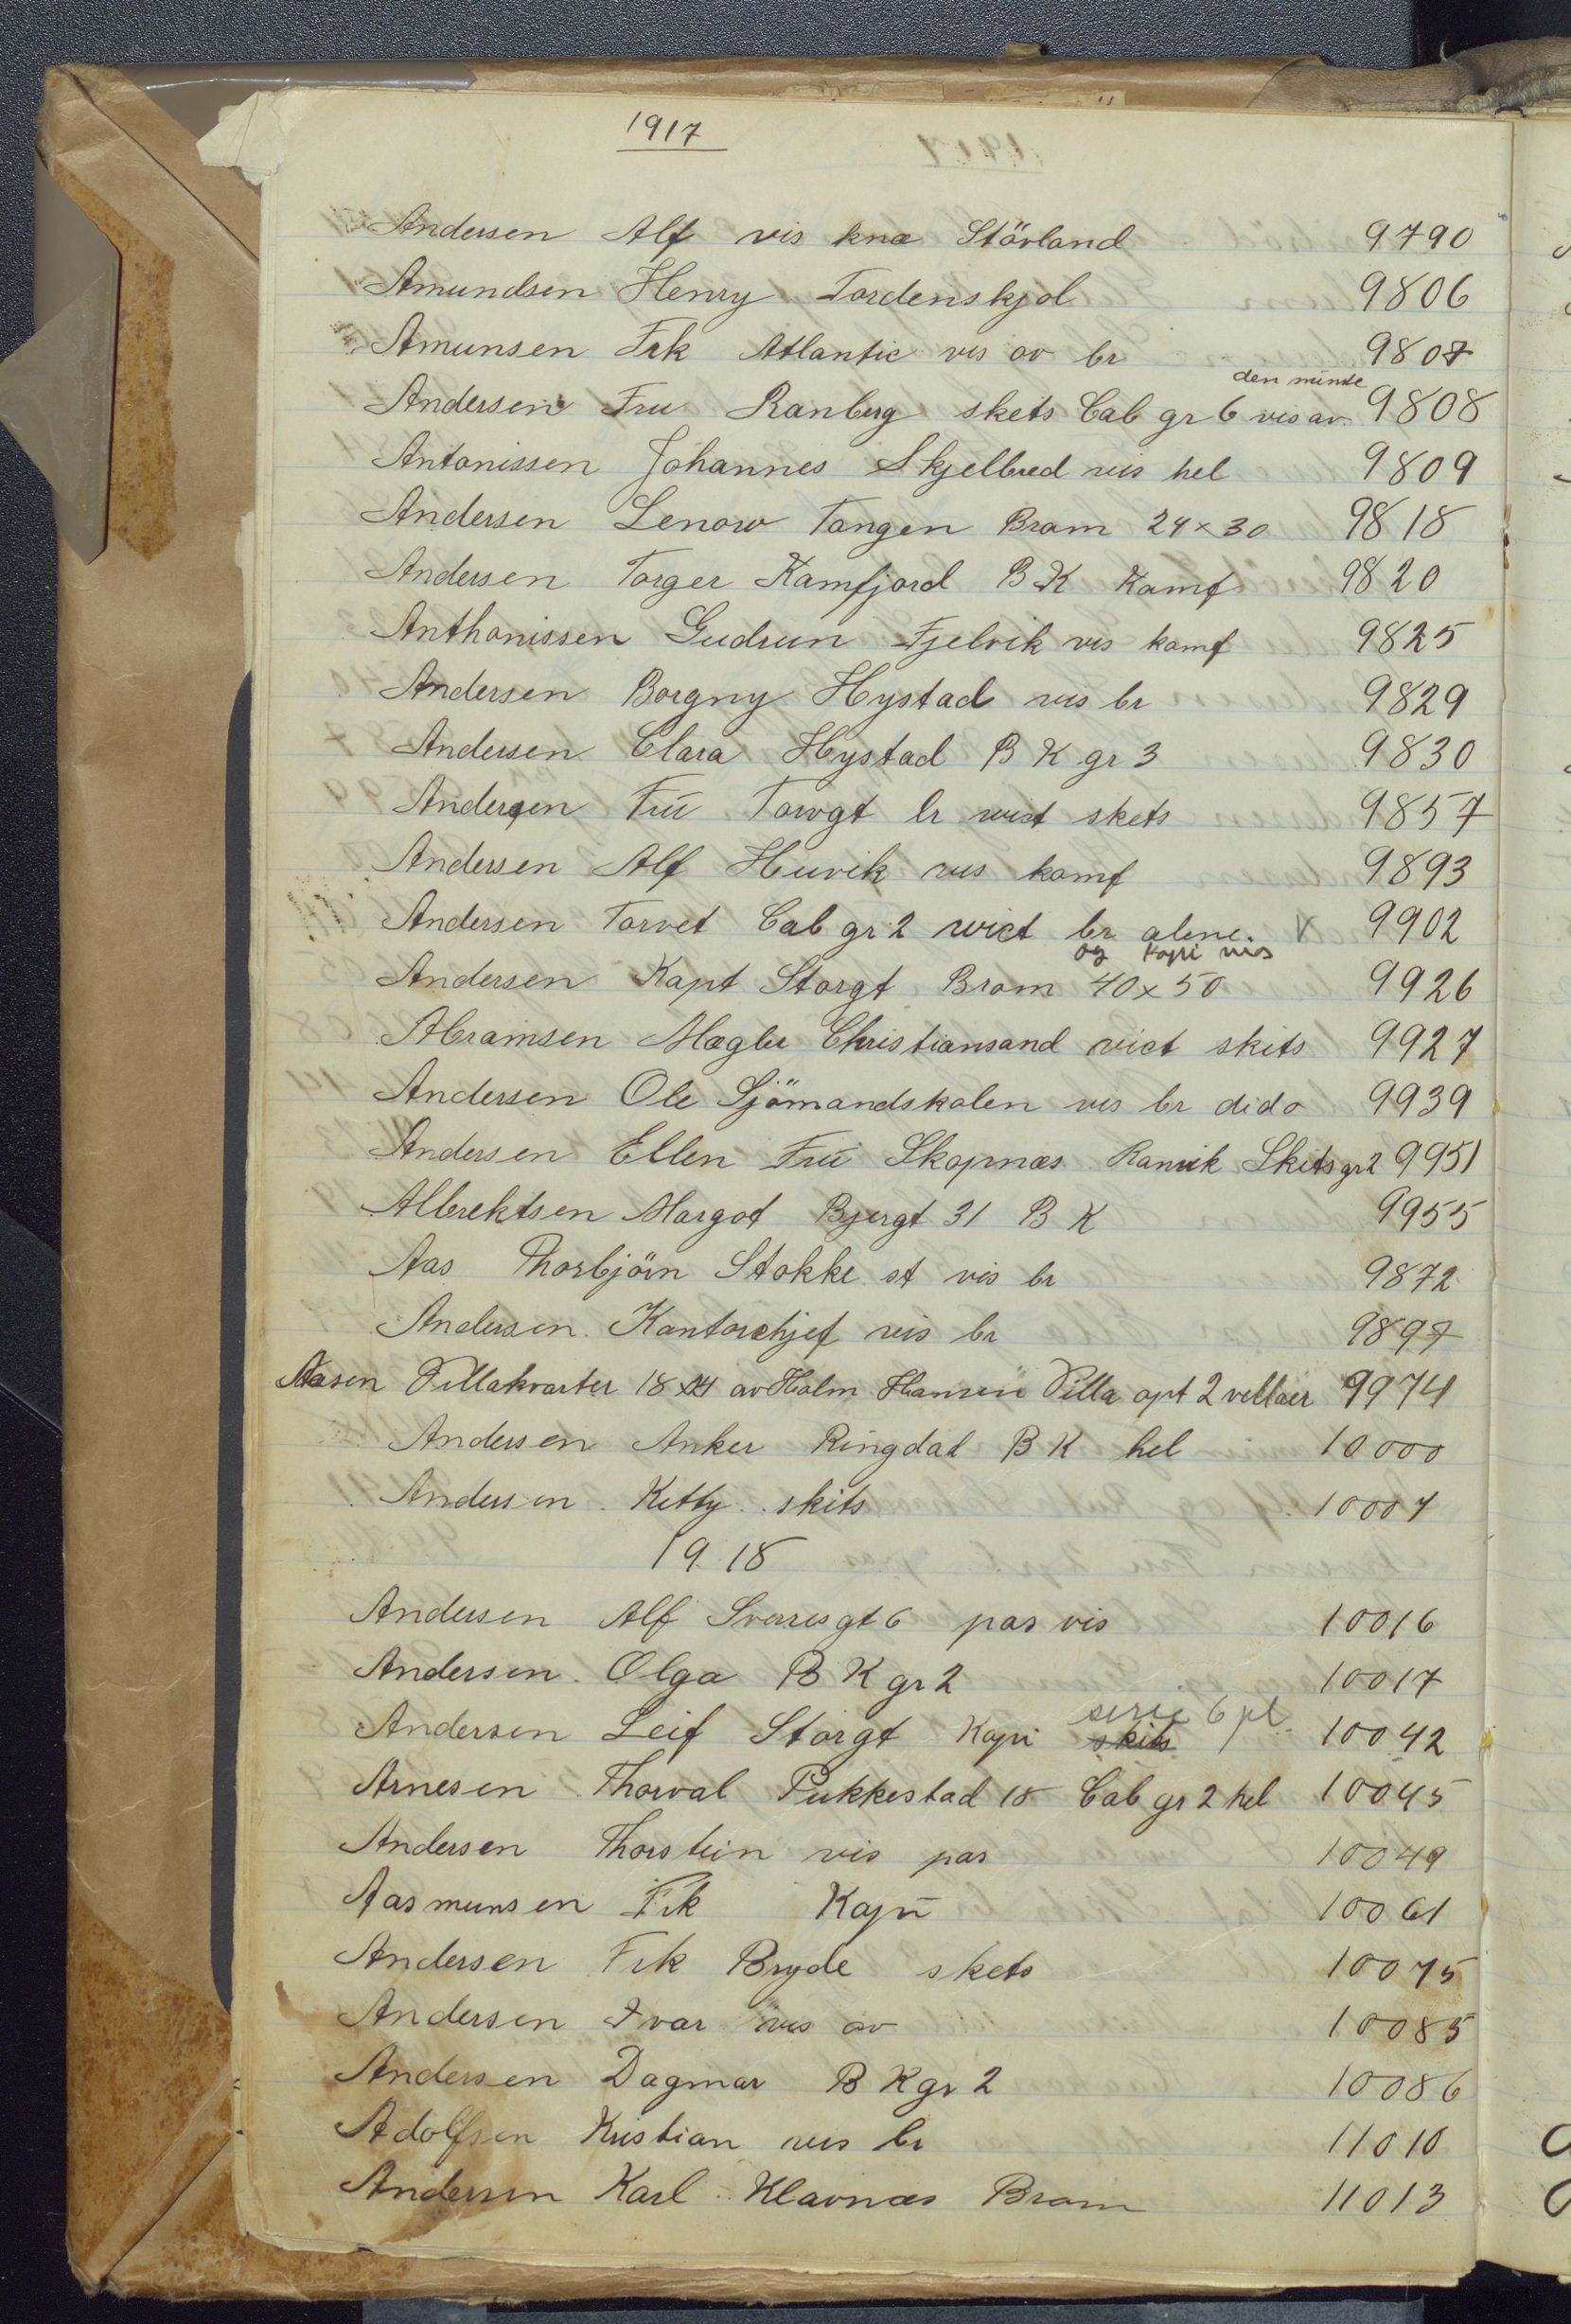 1917
Andersen Alf vis knæ Störland 9790
Amundsen Henry Tordenskjol 9806
Amunsen Frk Atlantic vis ov br 9807
den minste
Andersen Fru Ranberg skets Cab gr 6 vis av 9808
Antonissen Johannes Skjelbred vis hel 9809
Andersen Lenow Tangen Brom 24×30 9818
Andersen Torger Kamfjord B K Kamf 9820
Anthonissen Gudrun Fjelvik vis kamf 9825
Andersen Borgny Hystad vis br 9829
Andersen Clara Hystad B K gr 3 9830
Andersen Fru Torvgt br vict skets 9857
Andersen Alf Huvik vis kamf 9893
Andersen Torvet Cab gr 2 vict br alene. V 9902
og Kopi vis
Andersen Kapt Storgt Brom 40×50 9926
Abramsen Mægler Christiansand vict skits 9927
Andersen Ole Sjömandskolen vis br dido 9939
Andersen Ellen Fru Skopnæs Ranvik Skits gr 2 9951
Albrektsen Margot Bjergt 31 B K 9955
Aas Thorbjörn Stokke st vis br 9872
Andersen Kontorchjef vis br 9897
Aasen Villakvarter 18×24 av Holm Hansen Villa opt 2 villaer 9974
Andersen Anker Ringdal B K hel 10000
Andersen Kitty skits 10007
1918
Andersen Alf Sverresgt 6 pas vis 10016
Andersen Olga B K gr 2 10017
serie 6 pl
Andersen Leif Storgt Kopi skits 10042
Arnesen Thorval Pukkestad 18 Cab gr 2 hel 10045
Andersen Thorstein vis pas 10049
Aasmunsen Frk Kopi 10061
Andersen Frk Bryde skets 10075
Andersen Ivar vis ov 10085
Andersen Dagmar B K gr 2 10086
Adolfsen Kristian vis br 11010
Andersen Karl Klavnæs Brom 11013